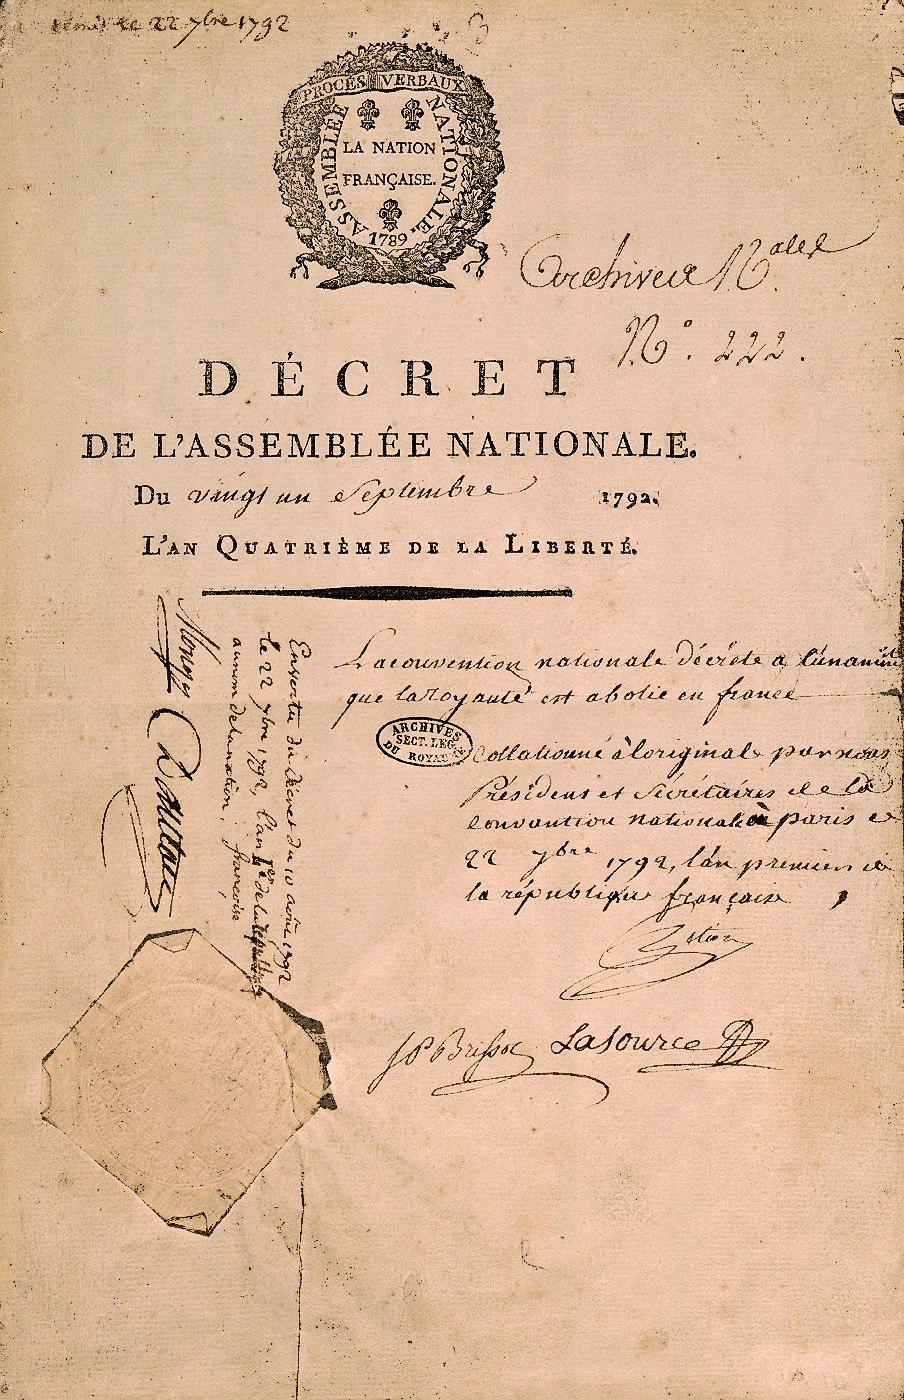 le 22 7bre 1792
PROCÈS VERBAUX
ASSEMBLÉE NATIONALE.
LA NATION
FRANÇAISE.
1789
Archives N.ales
N.° 222.
DÉCRET
DE L'ASSEMBLÉE NATIONALE.
Du vingt un Septembre 1792.
L'AN QUATRIÈME DE LA LIBERTÉ.
La convention nationale décrète a l'unanimité
que la Royauté est abolie en france
ARCHIVES
SECT. LEG.
DU ROYAUME
Collationné à l'original par nous
Président et Sécrétaires de la
Convention nationale à paris ce
22 7bre 1792, l'an premier de
la république françoise
Petion
J P Brissot Lasource
En vertu du Décret du 10 août 1792
le 22 7bre 1792 l'an 1er de la République
au nom de la nation, françoise
Monge
Danton